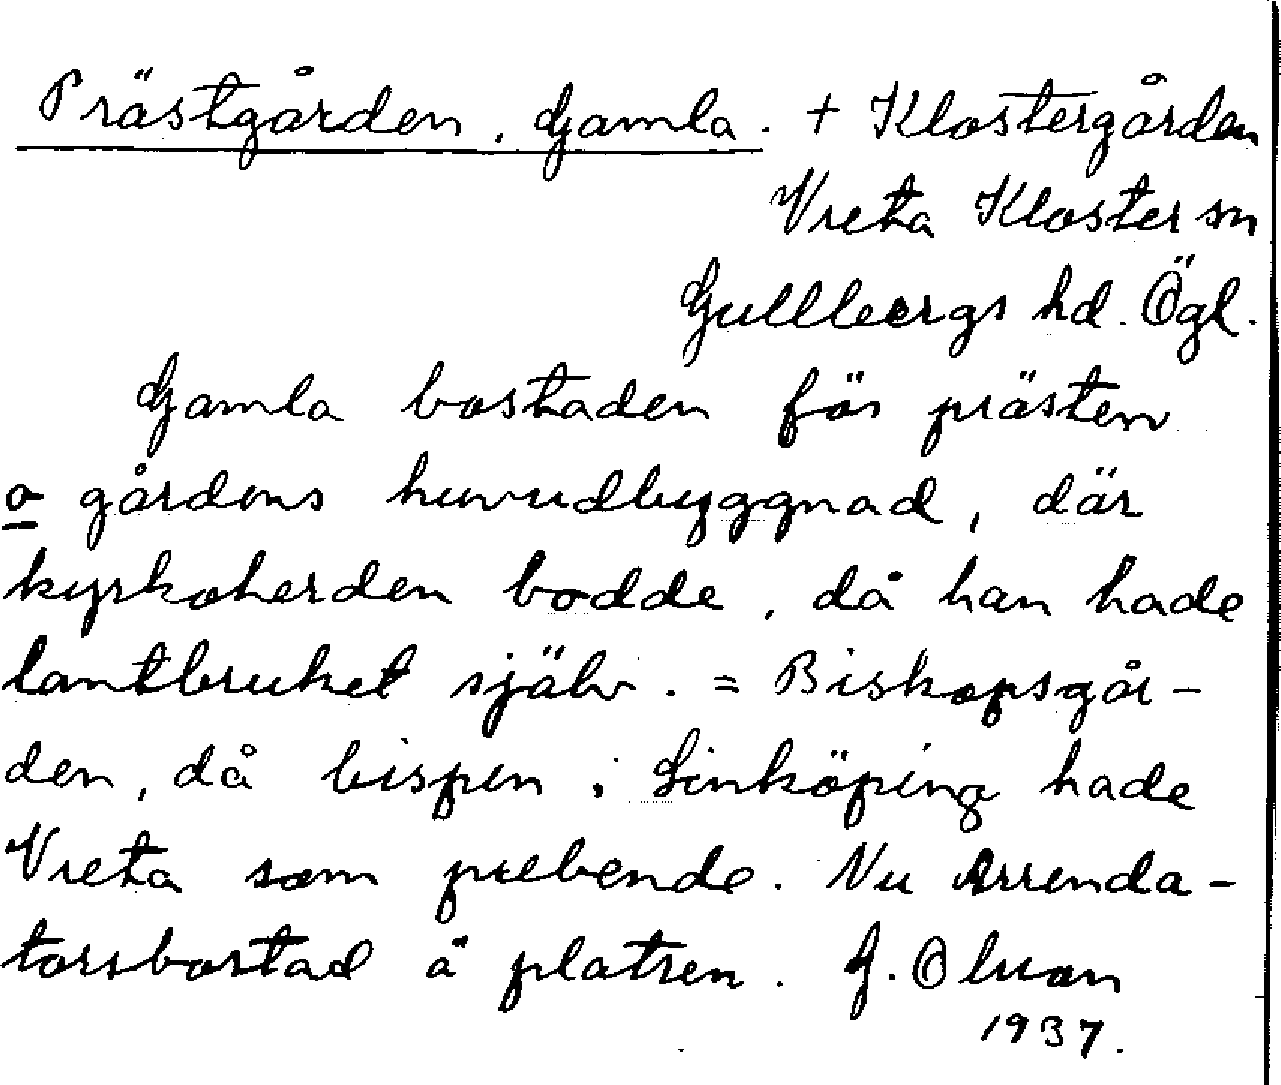 Prästgården, Gamla. + Klostergården
Vreta Kloster sn
Gullbergs hd. Ögl.
Gamla bostaden för prästen
o gårdens huvudbyggnad, där
kyrkoherden bodde, då han hade
lantbruket själv. = Biskopsgår-
den, då bispen i Linköping hade
Vreta som prebende. Nu Arrenda-
torsbostad å platsen. G. Olsson
1937.